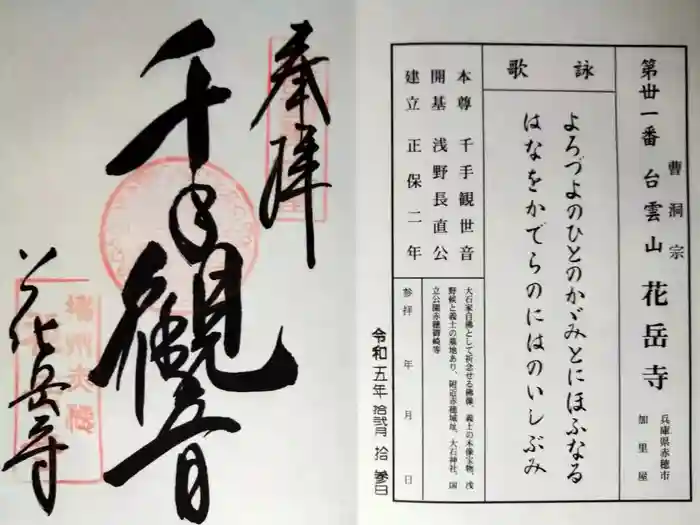 奉拝
千手観音
花岳寺
第丗一番 台雲山 花岳寺
曹洞宗
兵庫県赤穂市
加里屋
詠歌
よろづよのひとのかゞみとにほふなる
はなをかでらのにはのいしぶみ
本尊 千手観世音
開基 浅野長直公
建立 正保二年
大石家自佛として祈念せる佛像、義士の木像宝物、浅
野候と義士の墓地あり、附近赤穂城址、大石神社、国
立公園赤穂御崎等
参拝 年 月 日
令和五年 拾弐月 拾参日